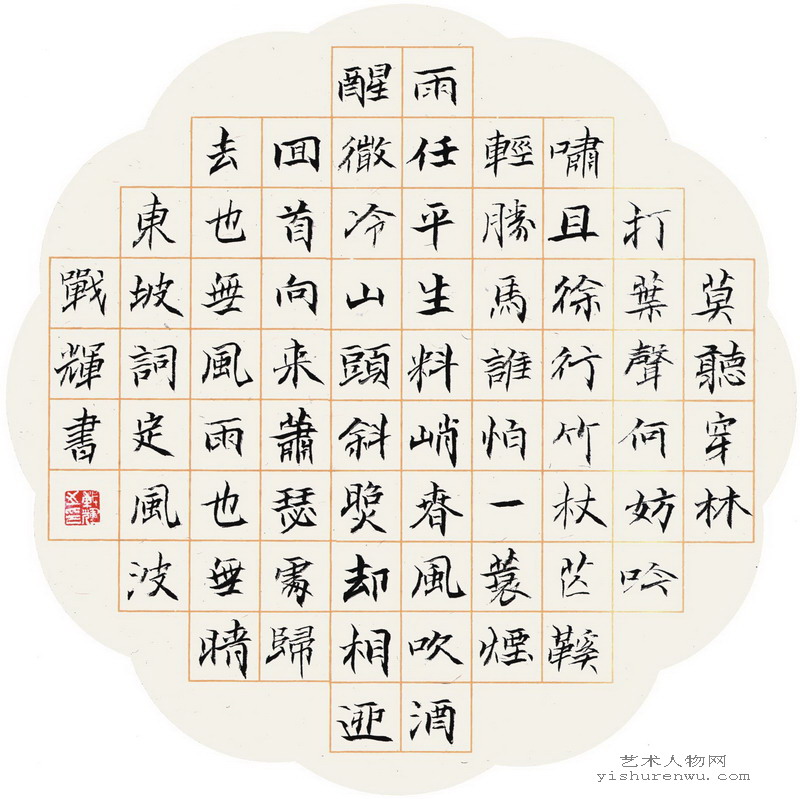 莫聽穿林
打葉聲何妨吟
嘯且徐行竹杖芒鞵
輕勝馬誰怕一蓑煙
雨任平生料峭春風吹酒
醒微冷山頭斜照却相迎
回首向来蕭瑟處歸
去也無風雨也無晴
東坡詞定風波
戰輝書
艺术人物网
yishurenwu.com